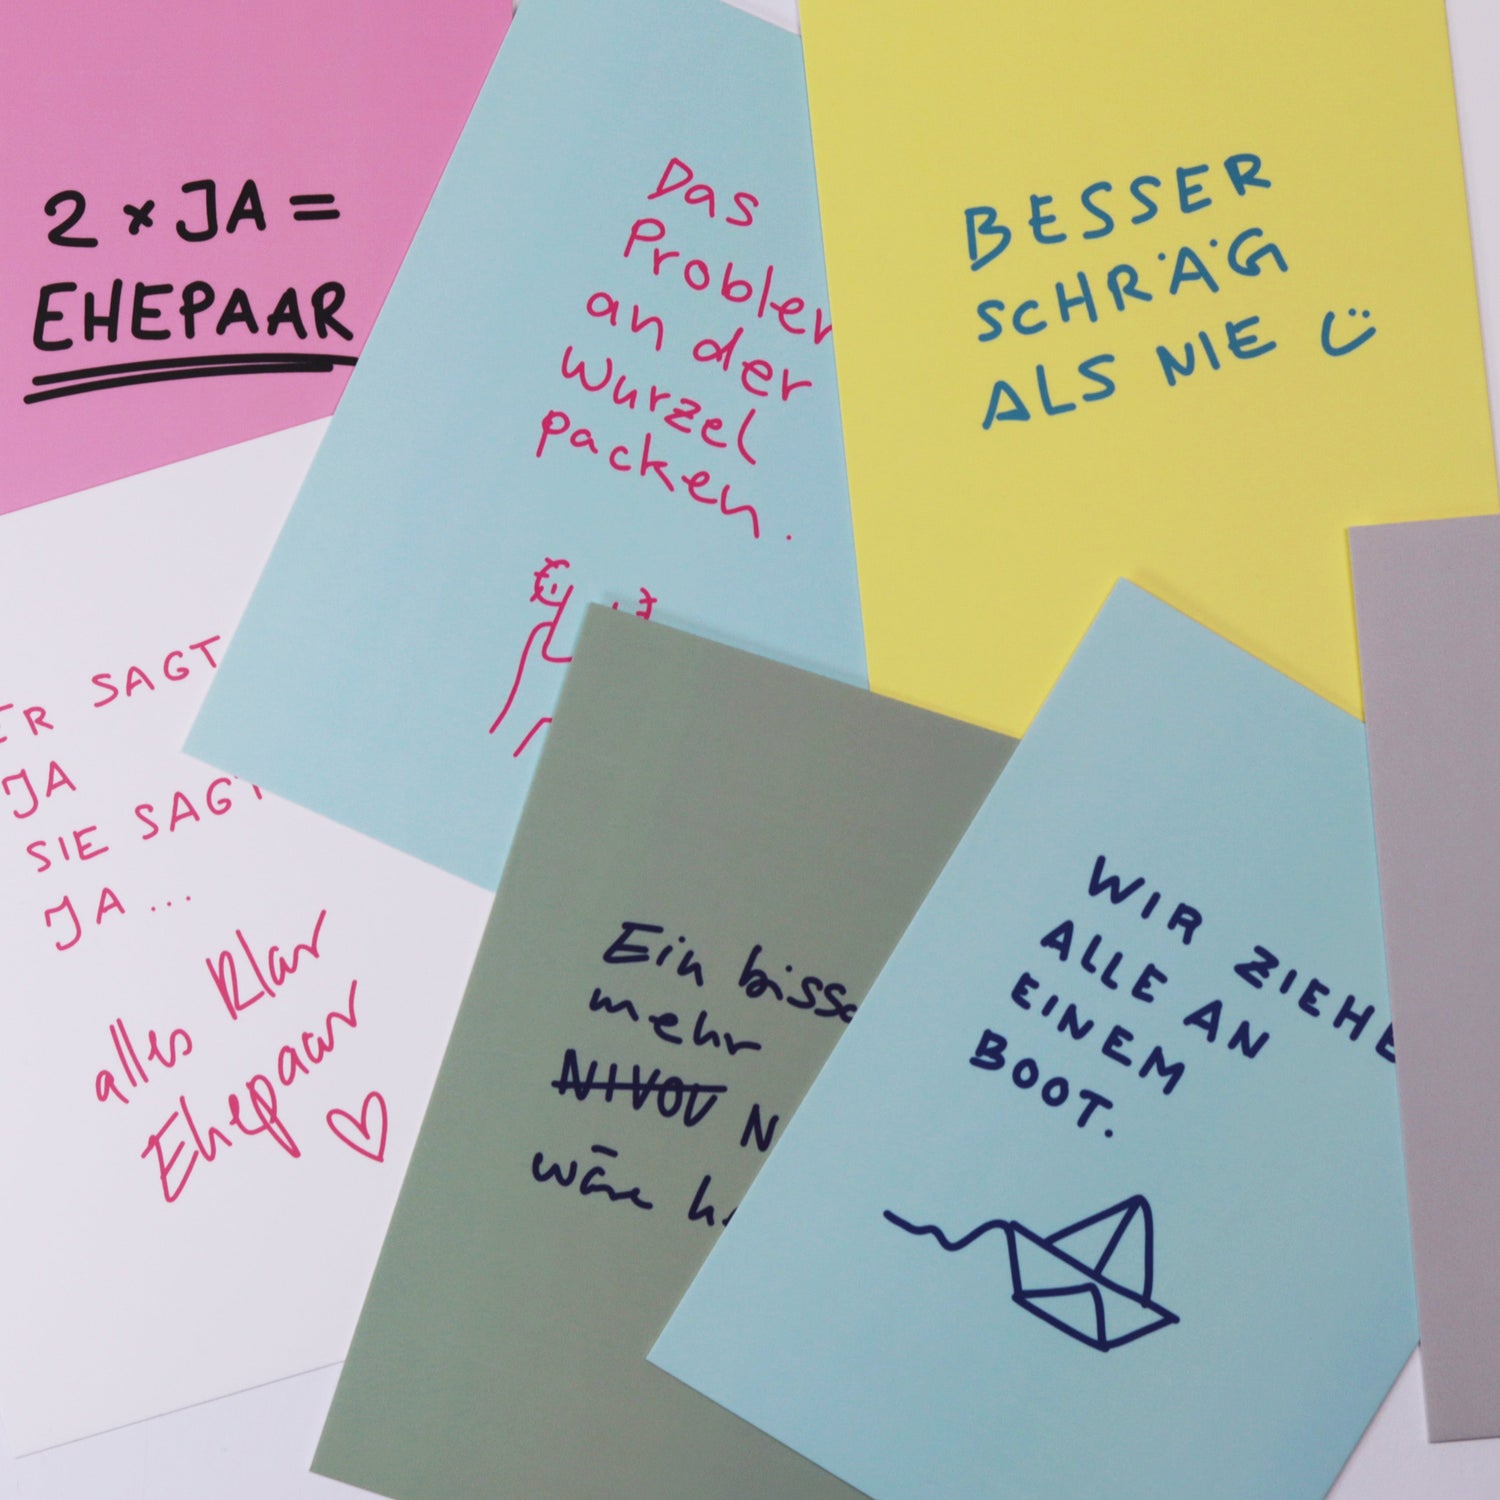 2 x JA =
EHEPAAR
Das
Problem
an der
Wurzel
packen.
BESSER
SCHRÄG
ALS NIE
ER SAGT
JA
SIE SAGT
JA...
alles klar
Ehepaar
Ein
mehr
NIVOU
wäre
WIR ZIEHE
ALLE AN
EINEM
BOOT.